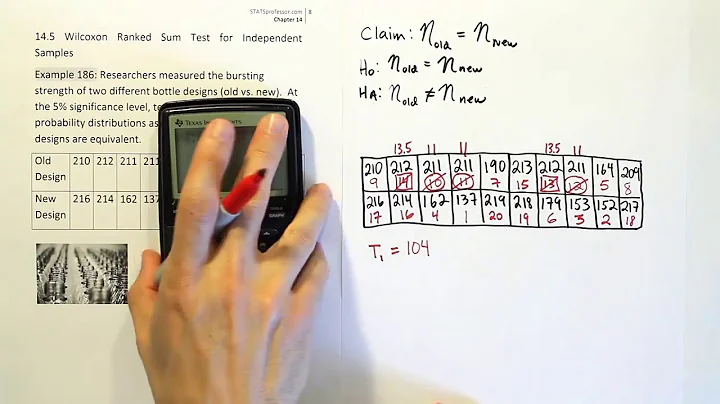 STATSprofessor.com 8
Chapter 14
14.5 Wilcoxon Ranked Sum Test for Independent
Samples
Example 186: Researchers measured the bursting
strength of two different bottle designs (old vs. new). At
the 5% significance level, te
probability distributions as
designs are equivalent.
Old Design 210 212 211 211
New Design 216 214 162 137
TEXAS INSTRUMENTS
GRAPH
Claim: η old = η New
H0: η old = η new
HA: η old ≠ η new
13.5 11 11 13.5 11
210 212 211 211 190 213 212 211 164 209
9 14 10 11 7 15 13 12 5 8
216 214 162 137 219 218 179 153 152 217
17 16 4 1 20 19 6 3 2 18
T1 = 104